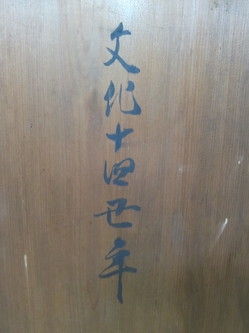 文化十四丑年